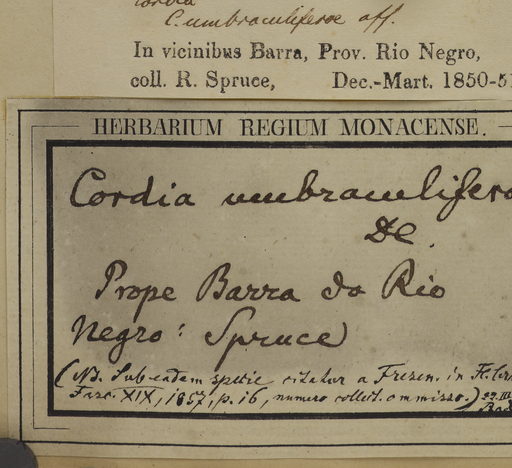 Cordia
C. umbraculiferae aff.
In vicinibus Barra, Prov. Rio Negro,
coll. R. Spruce, Dec.-Mart. 1850-51
HERBARIUM REGIUM MONACENSE.
Cordia umbraculifera
DC.
Prope Barra do Rio
Negro: Spruce
(NB. Sub eadem specie citatur a Fresen. in Fl. bras.
Fasc. XIX, 1857, p. 16, numero collect. ommisso.)